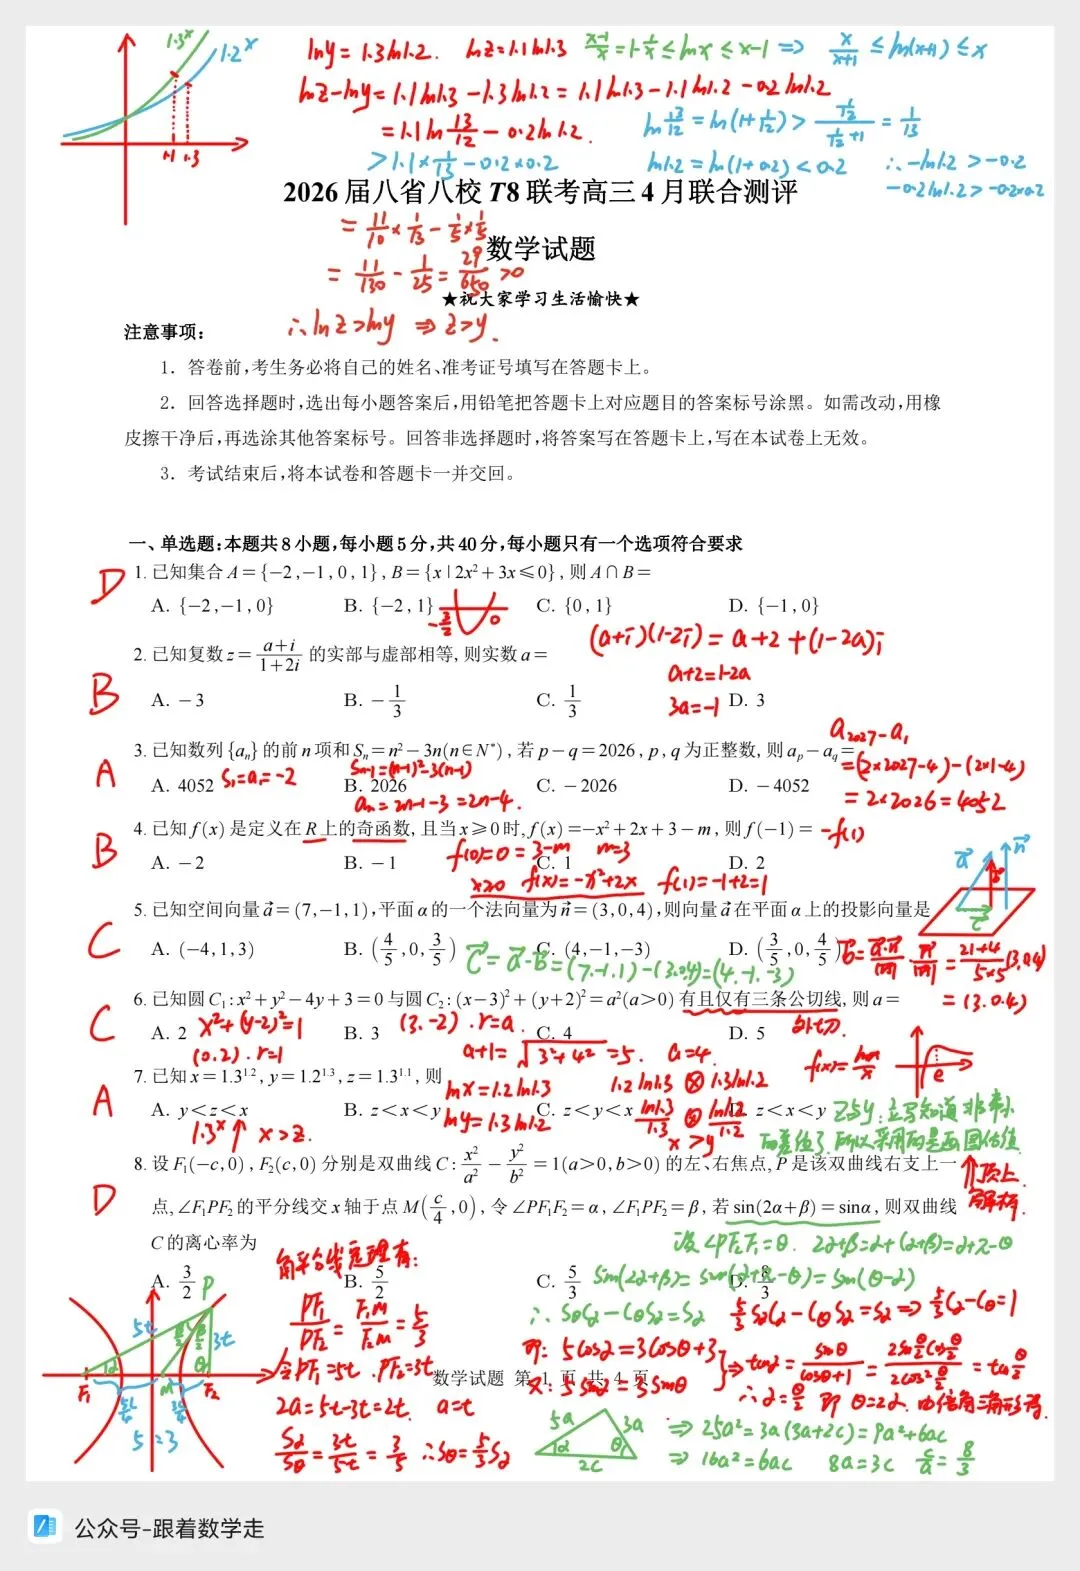 1.3^x
1.2^x
lny=1.3ln1.2. lnz=1.1ln1.3 (x-1)/x=1-1/x≤lnx≤x-1 ⇒ x/(x+1)≤ln(x+1)≤x
lnz-lny=1.1ln1.3-1.3ln1.2=1.1ln1.3-1.1ln1.2-0.2ln1.2
=1.1ln13/12-0.2ln1.2. ln13/12=ln(1+1/12)>(1/12)/(1/12+1)=1/13
1.1 1.3
>1.1×1/13-0.2×0.2 ln1.2=ln(1+0.2)<0.2 ∴-ln1.2>-0.2
-0.2ln1.2>-0.2×0.2
2026届八省八校T8联考高三4月联合测评
=11/10×1/13-1/5×1/5
数学试题
=11/130-1/25=29/650>0
★祝大家学习生活愉快★
∴lnz>lny ⇒z>y.
注意事项:
1. 答卷前,考生务必将自己的姓名、准考证号填写在答题卡上。
2. 回答选择题时,选出每小题答案后,用铅笔把答题卡上对应题目的答案标号涂黑。如需改动,用橡
皮擦干净后,再选涂其他答案标号。回答非选择题时,将答案写在答题卡上,写在本试卷上无效。
3. 考试结束后,将本试卷和答题卡一并交回。
一、单选题:本题共8小题,每小题5分,共40分,每小题只有一个选项符合要求
D 1. 已知集合A={-2,-1,0,1},B={x|2x²+3x≤0},则A∩B=
A. {-2,-1,0} B. {-2,1} C. {0,1} D. {-1,0}
-3/2 0
(a+i)(1-2i)=a+2+(1-2a)i
2. 已知复数z=(a+i)/(1+2i)的实部与虚部相等,则实数a=
a+2=1-2a
B A. -3 B. -1/3 C. 1/3 D. 3
3a=-1
a2027-a1
3. 已知数列{aₙ}的前n项和Sₙ=n²-3n(n∈N*),若p-q=2026,p,q为正整数,则aₚ-a_q=
=(2×2027-4)-(2×1-4)
Sn-1=(n-1)²-3(n-1)
A A. 4052 S1=a1=-2 B. 2026 C. -2026 D. -4052
an=2n-1-3=2n-4. =2×2026=4052
4. 已知f(x)是定义在R上的奇函数,且当x≥0时,f(x)=-x²+2x+3-m,则f(-1)= -f(1)
B A. -2 B. -1 C. 1 D. 2
f(0)=0=3-m m=3
x≥0 f(x)=-x²+2x f(1)=-1+2=1
a n b c
5. 已知空间向量a⃗=(7,-1,1),平面α的一个法向量为n⃗=(3,0,4),则向量a⃗在平面α上的投影向量是
C A. (-4,1,3) B. (4/5,0,3/5) C. (4,-1,-3) D. (3/5,0,4/5)
b=a·n/|n|·n/|n|=(21+4)/(5×5)(3,0,4)
c=a-b=(7,-1,1)-(3,0,4)=(4,-1,-3)
=(3,0,4)
6. 已知圆C₁:x²+y²-4y+3=0与圆C₂:(x-3)²+(y+2)²=a²(a>0)有且仅有三条公切线,则a=
C A. 2 x²+(y-2)²=1 B. 3 (3,-2).r=a. C. 4 D. 5 外切.
(0,2).r=1 a+1=√(3²+4²)=5. a=4.
f(x)=lnx/x e
7. 已知x=1.3^1.2,y=1.2^1.3,z=1.3^1.1,则
lnx=1.2ln1.3 1.2ln1.3 > 1.3ln1.2
A A. y<z<x B. z<x<y C. z<y<x D. z<x<y
1.3^x↑ x>z. lny=1.3ln1.2 ln1.3/1.3 > ln1.2/1.2
x>y
z与y
8. 设F₁(-c,0),F₂(c,0)分别是双曲线C:x²/a²-y²/b²=1(a>0,b>0)的左、右焦点,P是该双曲线右支上一
↑顶上解析.
D 点,∠F₁PF₂的平分线交x轴于点M(c/4,0),令∠PF₁F₂=α,∠F₁PF₂=β,若sin(2α+β)=sinα,则双曲线
C的离心率为
设∠PF2F1=θ. 2α+β=α+(α+β)=α+π-θ
角平分线定理有:
A. 3/2 B. 5/2 C. 5/3 D. 8/3
sin(2α+β)=sin(α+π-θ)=sin(θ-α)
PF1/PF2=F1M/F2M=5/3
∴SθCα-CθSα=Sα 5/3SαCα-CθSα=Sα⇒5/3Cα-Cθ=1
即:5cosα=3cosθ+3
令PF1=5t.PF2=3t
又:5sinα=3sinθ
⇒tanα=sinθ/(cosθ+1)=2sinθ/2cosθ/2/2cos²θ/2=tanθ/2
数学试题 第 1 页 共 4 页
∴α=θ/2 即θ=2α.由倍角三角形得.
2a=5t-3t=2t. a=t
Sα/Sθ=3t/5t=3/5 ∴Sθ=5/3Sα
5a 3a α θ 2c
⇒25a²=3a(3a+2c)=9a²+6ac
⇒16a²=6ac 8a=3c c/a=8/3
P 5t 3t α θ F1 M F2
5:3
公众号-跟着数学走